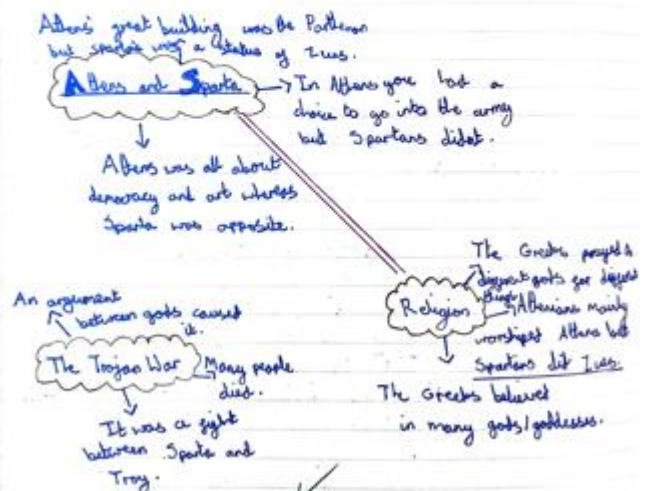 Athens' great building was the Parthenon
but Spartans was a statue of Zues.
Athens and Sparta
In Athens you had a
choice to go into the army
but Spartans didnt.
Athens was all about
democracy and art whereas
Sparta was opposite.
The Greeks prayed to
different gods for different
things
Religion
Athenians mainly
worshipt Athena but
Spartans did Zues.
The Greeks believed
in many gods/goddesses.
An argument
between gods caused
it.
The Trojan War
Many people
died.
It was a fight
between Sparta and
Troy.